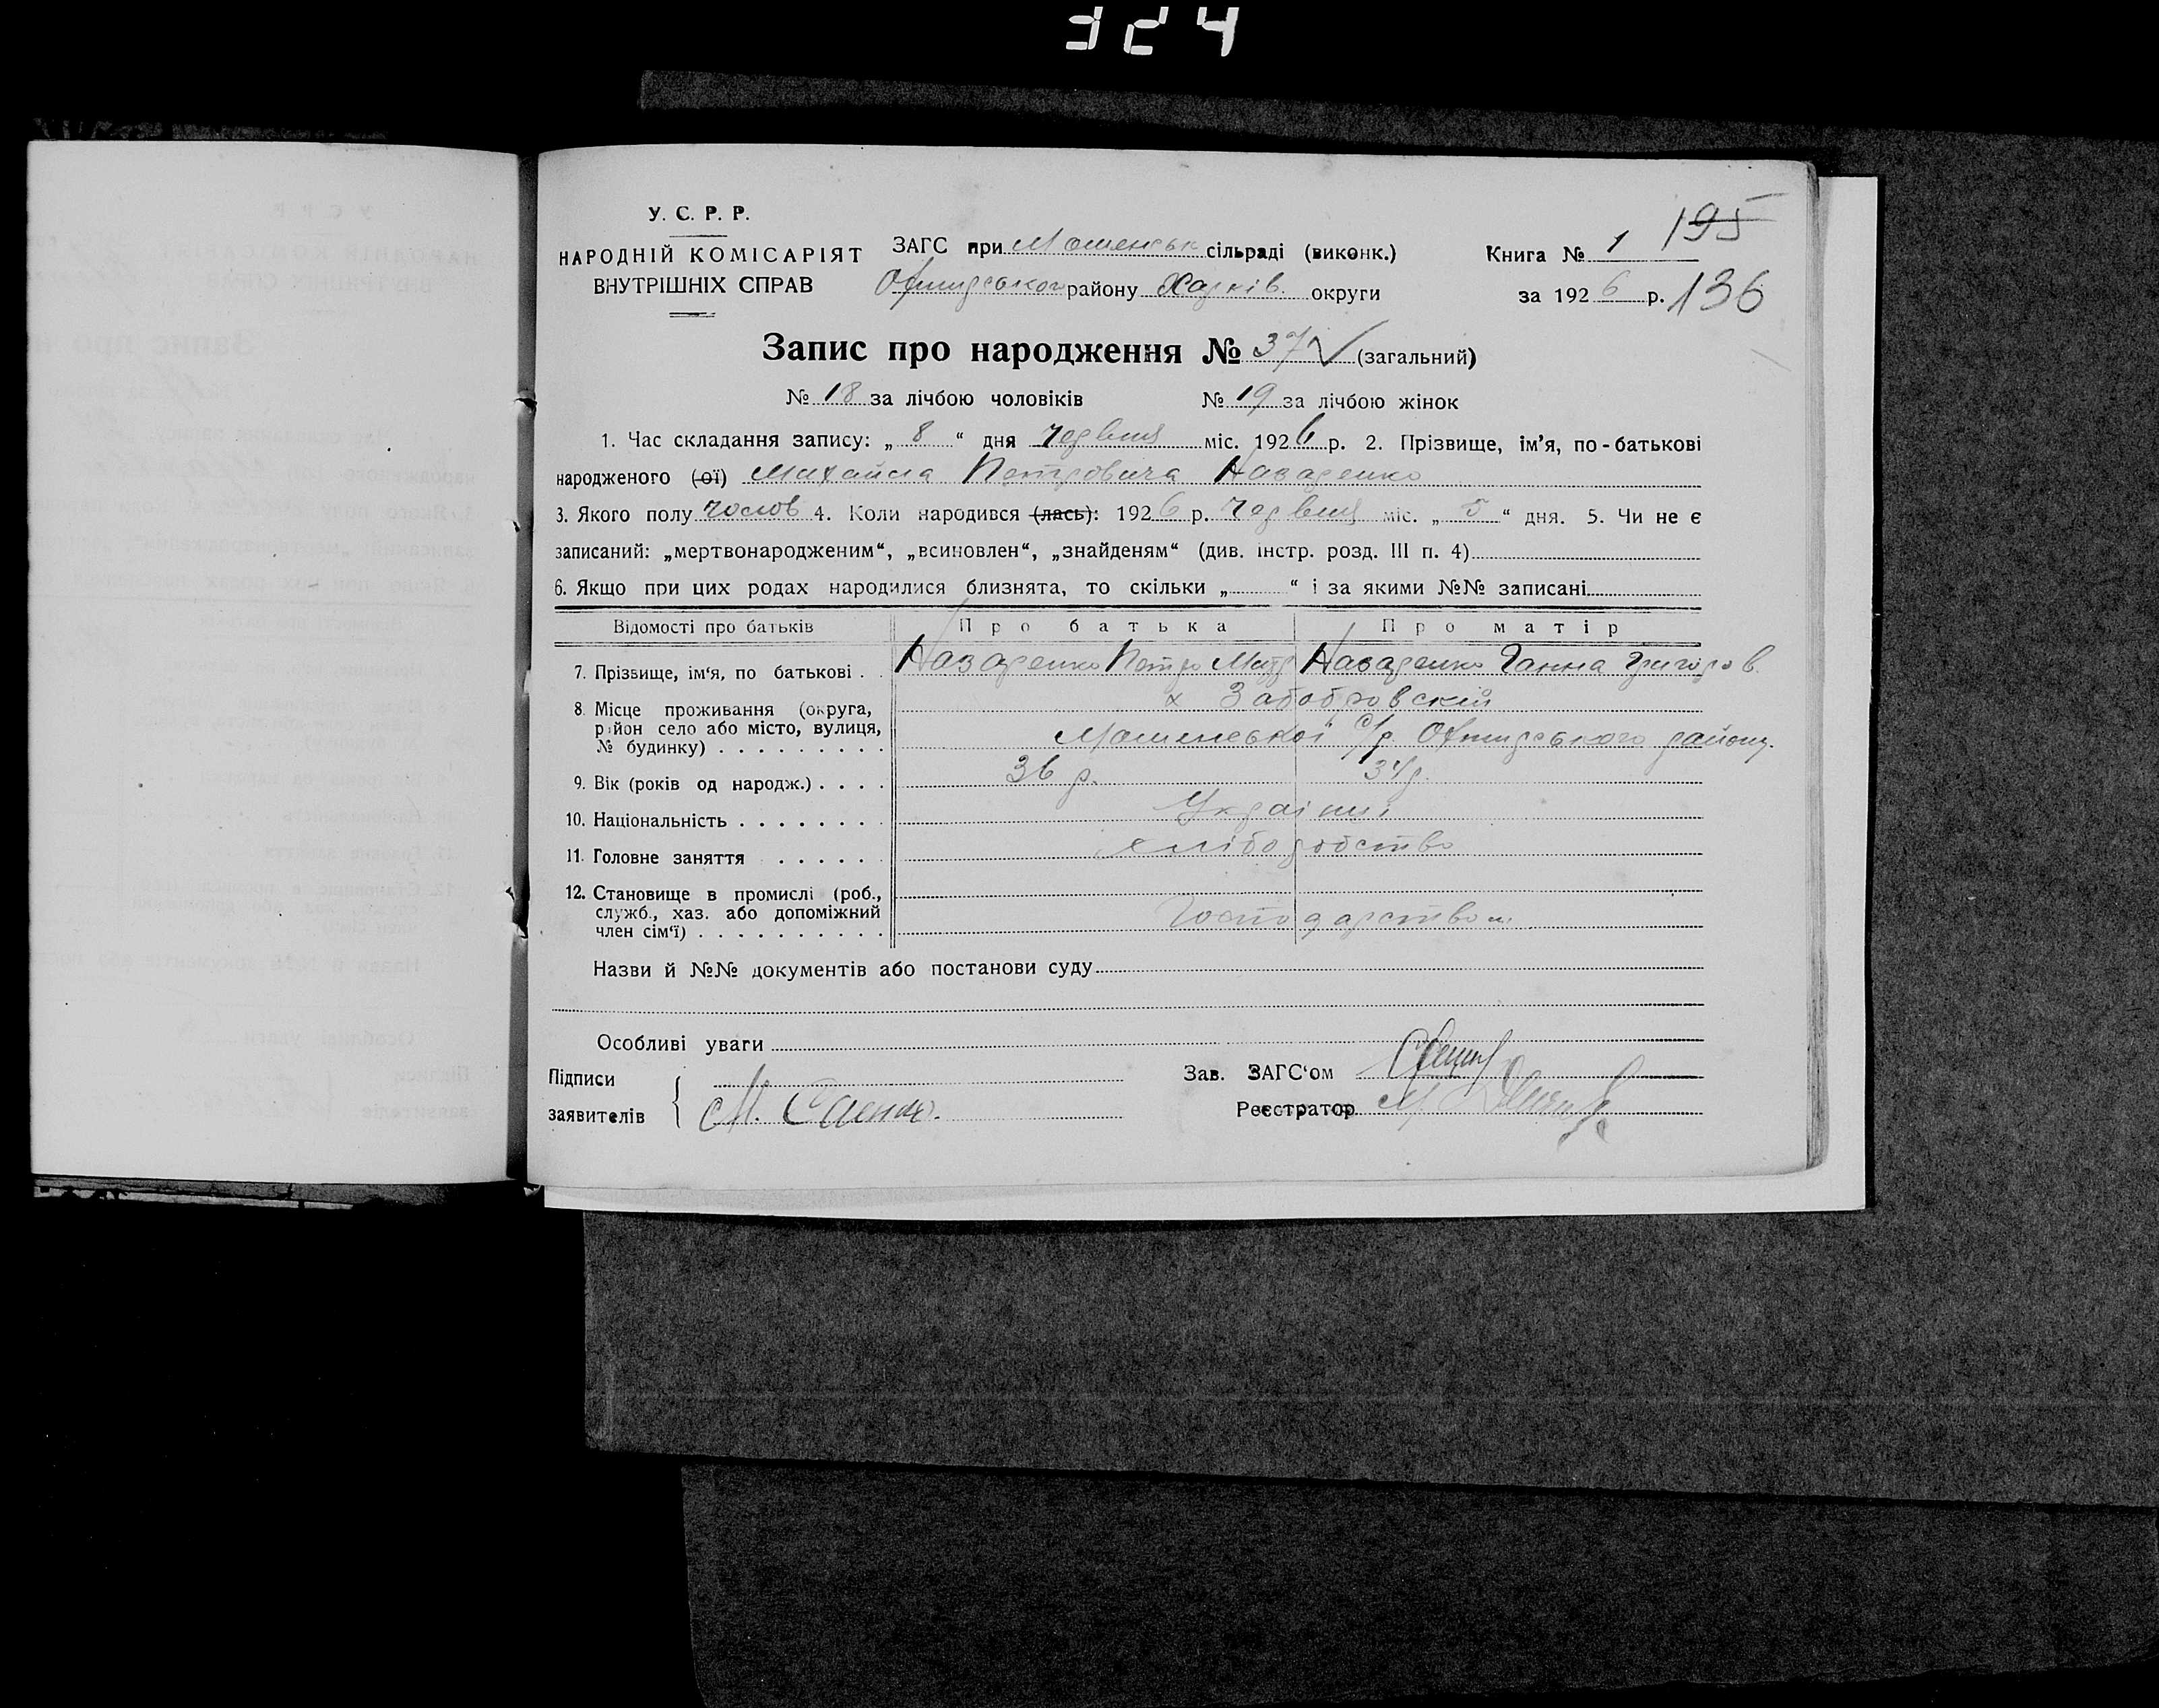 324
У. С. Р. Р.
НАРОДНІЙ КОМІСАРІЯТ
ВНУТРІШНІХ СПРАВ
ЗАГС при Мошенськ сільраді (виконк.)
Охтирського району Харків. округи
Книга № 1 195
за 1926 р. 136
Запис про народження № 37 (загальний)
№ 18 за лічбою чоловіків № 19 за лічбою жінок
1. Час складання запису: „ 8 “ дня червня міс. 1926 р. 2. Прізвище, ім’я, по-батькові
народженого (ої) Михайла Петровича Назаренко
3. Якого полу чолов 4. Коли народився (лась): 1926 р. червня міс. „ 5 “ дня. 5. Чи не є
записаний: „мертвонародженим“, „всиновлен“, „знайденям“ (див. інстр. розд. III п. 4)
6. Якщо при цих родах народилися близнята, то скільки „ “ і за якими №№ записані
Відомості про батьків Про батька Про матір
7. Прізвище, ім‘я, по батькові . . Назаренко Петро Митр Назаренко Ганна Григоров.
8. Місце проживання (округа, район село або місто, вулиця, № будинку) . . . . . . . . . х Забобровскій
Мошенської с/р. Охтирського району.
9. Вік (років од народж.) . . . . 36 р. 34 р.
10. Національність . . . . . . . . Україниі
11. Головне заняття . . . . . . хліборобство
12. Становище в промислі (роб., служб., хаз. або допоміжний член сім‘ї) . . . . . . . . . . Господарством
Назви й №№ документів або постанови суду
Особливі уваги
Підписи
заявителів
М. Саенко.
Зав. ЗАГС‘ом
Реєстратор М.